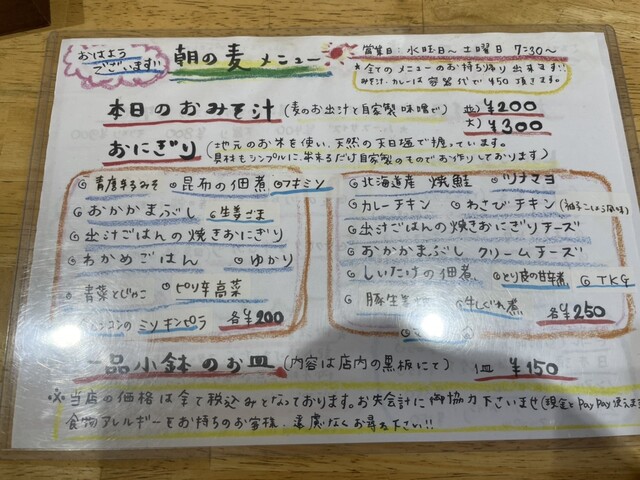 おはよう
ございます!!
朝の麦メニュー
営業日:水曜日〜土曜日 7:30〜
*全てのメニューのお持ち帰り出来ます!!
みそ汁、カレーは容器代で¥50頂きます。
本日のおみそ汁(麦のお出汁と自家製味噌で)
¥200
大)¥300
おにぎり(地元のお米を使い、天然の天日塩で握っています。
具材もシンプルに、出来るだけ自家製のものでお作りしております)
青唐辛子みそ 昆布の佃煮 フキミソ
おかかまぶし 生姜ごま
出汁ごはんの焼きおにぎり
わかめごはん ゆかり
青菜とじゃこ ピリ辛高菜
ミソキンピラ 各¥200
北海道産焼鮭 ツナマヨ
カレーチキン わさびチキン(柚子こしょう風味)
出汁ごはんの焼きおにぎりチーズ
おかかまぶしクリームチーズ
しいたけの佃煮 とり皮の甘辛煮 TKG
豚生姜 牛しぐれ煮 各¥250
一品小鉢のお皿(内容は店内の黒板にて) 1皿 ¥150
※当店の価格は全て税込みとなっております。お会計に御協力下さいませ(現金とPayPay使えます
食物アレルギーをお持ちのお客様、遠慮なくお尋ね下さい!!